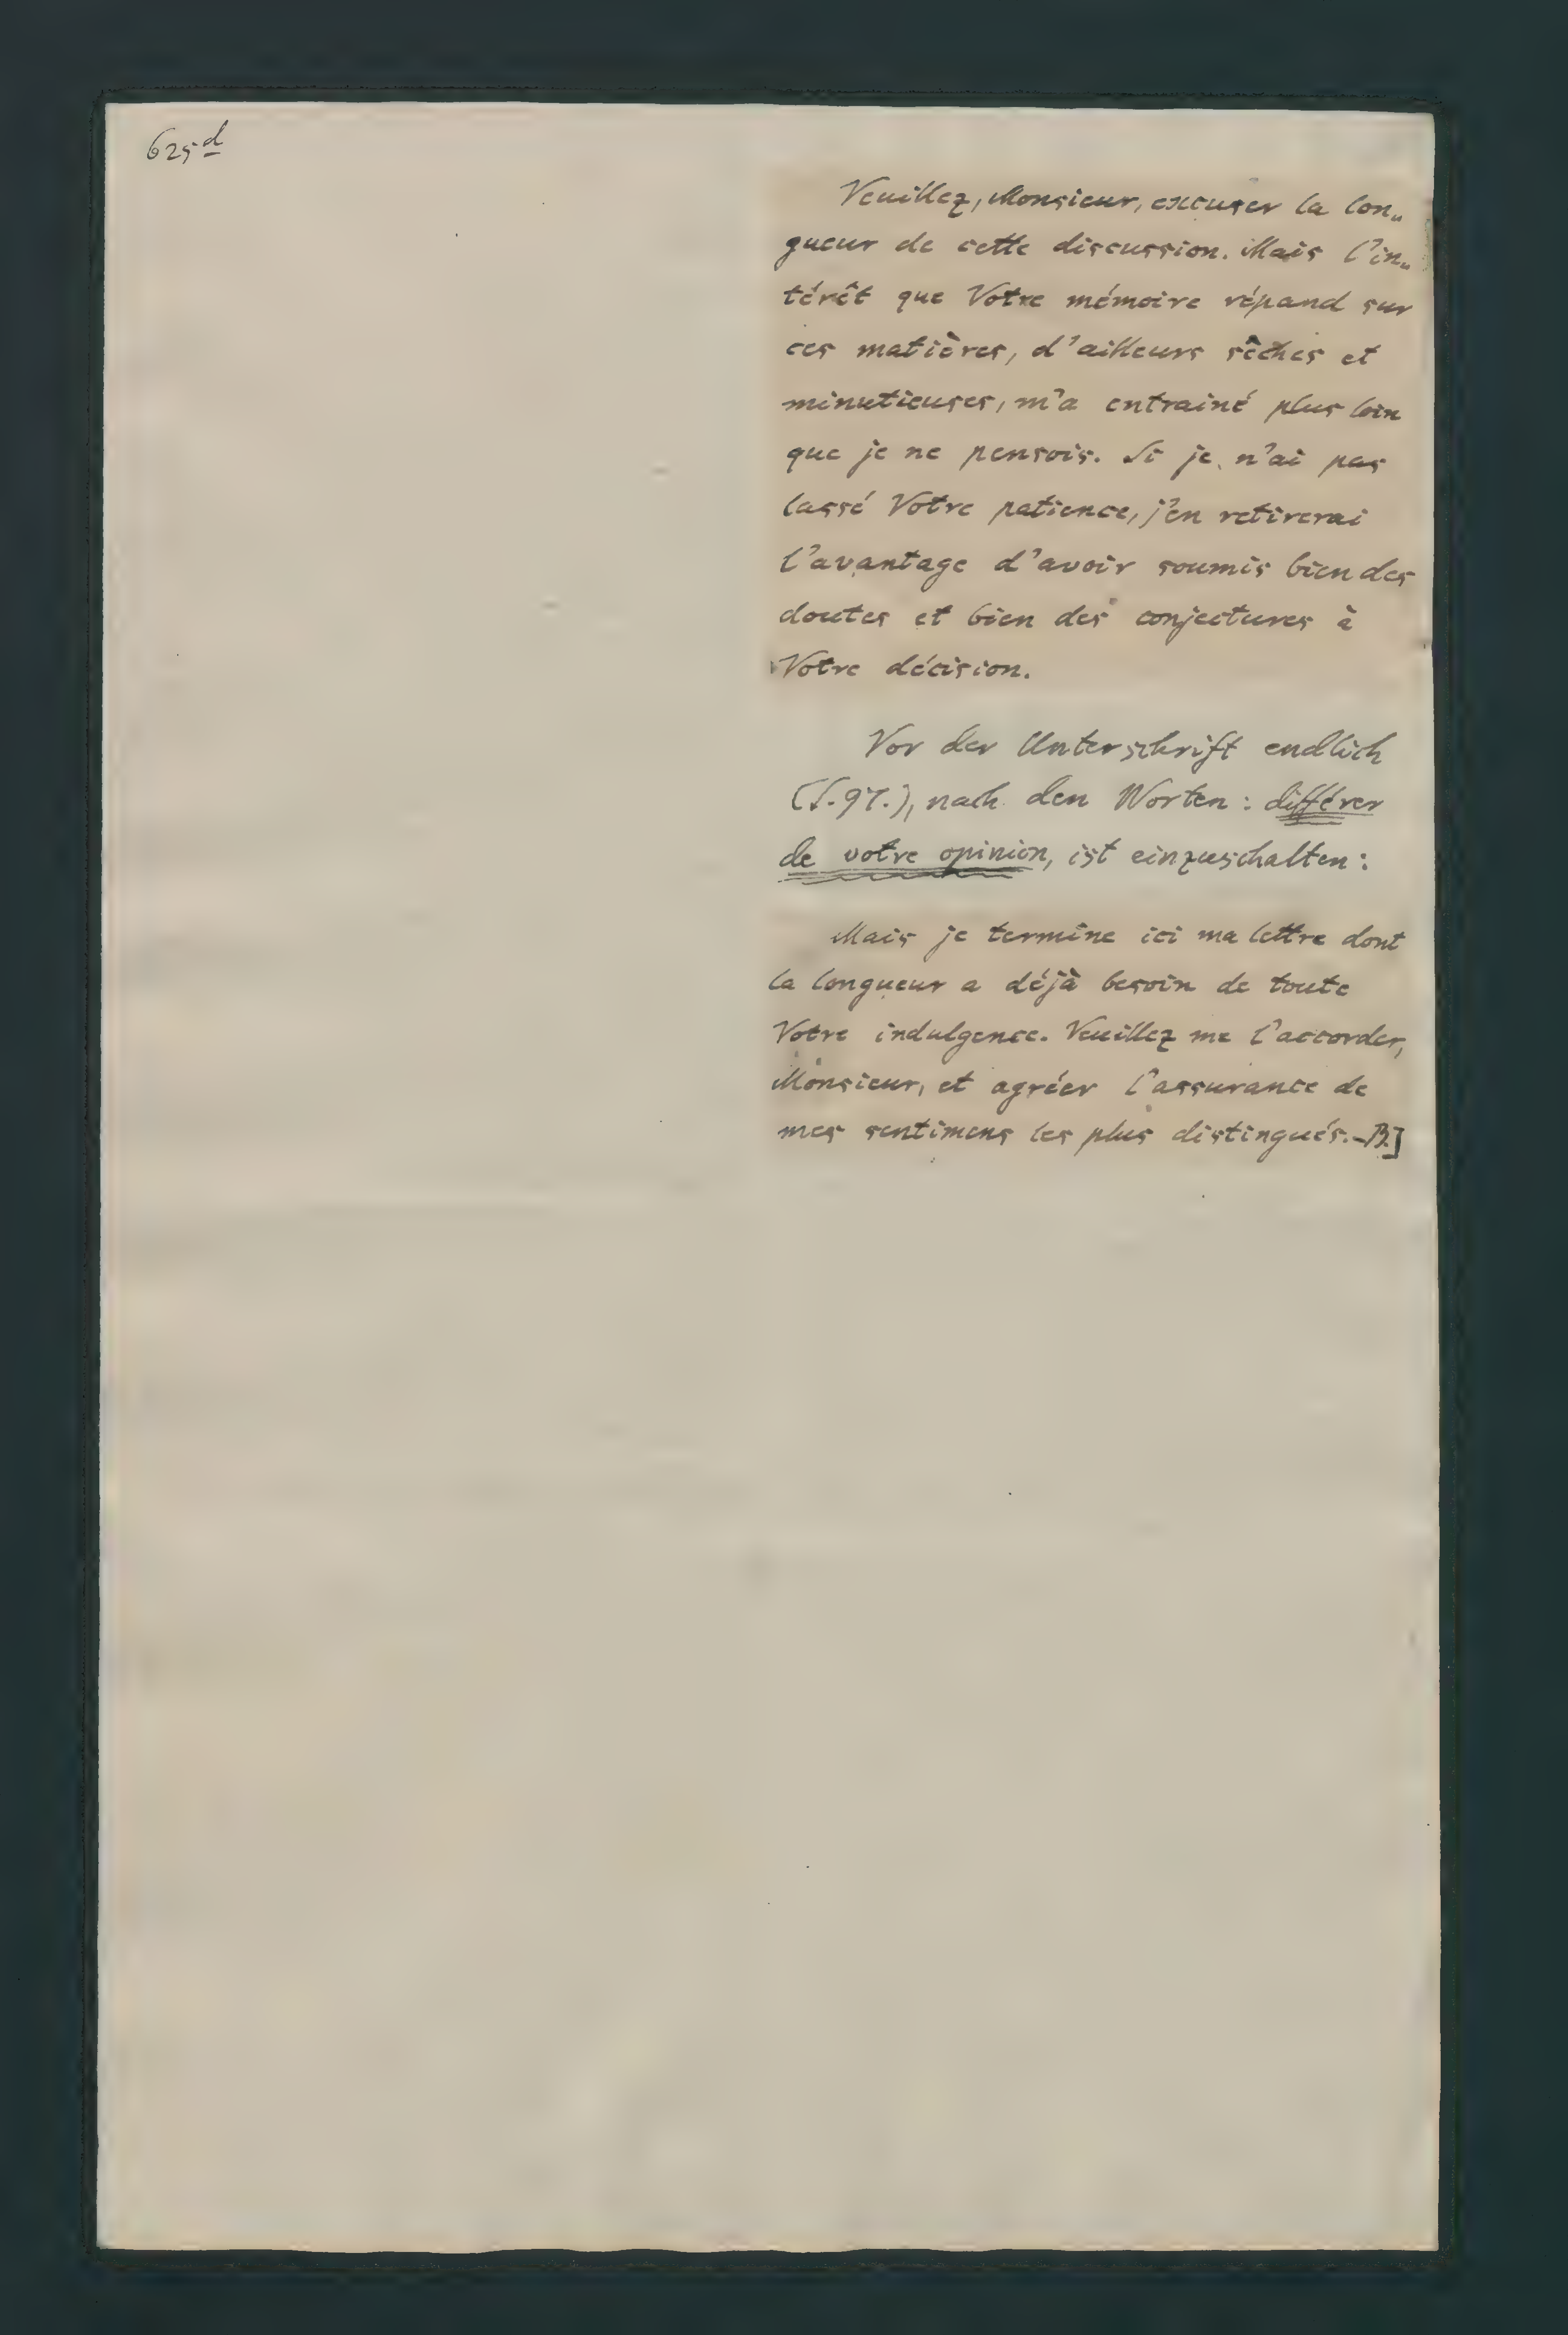 625d
Veuillez, Monsieur, excuser la lon„
gueur de cette discussion. Mais l'in„
térêt que Votre mémoire répand sur
ces matières, d'ailleurs sêches et
minutieuses, m'a entrainé plus loin
que je ne pensois. Si je n'ai pas
lassé Votre patience, j'en retirerai
l'avantage d'avoir soumis bien des
doutes et bien des conjectures à
Votre décision.
Vor der Unterschrift endlich
(S. 97.), nach den Worten: différer
de votre opinion, ist einzuschalten:
Mais je termine ici ma lettre dont
la longueur a déjà besoin de toute
Votre indulgence. Veuillez me l'accorder,
Monsieur, et agréer l'assurance de
mes sentimens les plus distingués.–B.]